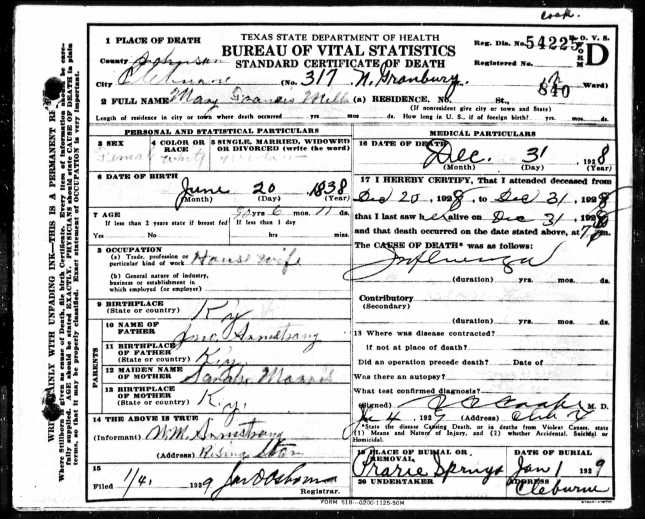 Cook.
TEXAS STATE DEPARTMENT OF HEALTH
BUREAU OF VITAL STATISTICS
STANDARD CERTIFICATE OF DEATH
Reg. Dis. No. 54225
Registered No.
840
D
FORM
O. V. S.
1 PLACE OF DEATH
County Johnson
City Cleburne (No. 317 N. Granbury. Ward)
2 FULL NAME Mary Francis (a) RESIDENCE. No. St.,
(If nonresident give city or town and State)
Length of residence in city or town where death occurred yrs. mos. ds. How long in U. S., if of foreign birth? yrs. mos. ds.
PERSONAL AND STATISTICAL PARTICULARS
3 SEX
Female
4 COLOR OR RACE
White
5 SINGLE, MARRIED, WIDOWED OR DIVORCED (write the word)
6 DATE OF BIRTH
June 20 1838
(Month) (Day) (Year)
7 AGE 90 yrs 6 mos. 11 ds.
If less than 2 years state if breast fed If less than 1 day
Yes No hrs mins.
8 OCCUPATION
(a) Trade, profession or particular kind of work House wife
(b) General nature of industry, business or establishment in which employed (or employer)
9 BIRTHPLACE
(State or country) Ky
PARENTS
10 NAME OF FATHER Armstrong
11 BIRTHPLACE OF FATHER
(State or country) Ky
12 MAIDEN NAME OF MOTHER Sarah Morris
13 BIRTHPLACE OF MOTHER
(State or country) Ky.
14 THE ABOVE IS TRUE
(Informant) W. M. Armstrong
(Address) Rising Star
15
Filed 1/4, 1929 Osborne
Registrar.
MEDICAL PARTICULARS
16 DATE OF DEATH
Dec. 31 1928
(Month) (Day) (Year)
17 I HEREBY CERTIFY, That I attended deceased from
Dec 20, 1928, to Dec 31, 1928
that I last saw her alive on Dec 31, 1928
and that death occurred on the date stated above, at 7
The CAUSE OF DEATH* was as follows:
Influenza
(duration) yrs. mos. ds.
Contributory
(Secondary)
(duration) yrs. mos. ds.
13 Where was disease contracted?
If not at place of death?
Did an operation precede death? Date of
Was there an autopsy?
What test confirmed diagnosis?
(Signed) Cooke M. D.
4 1929 (Address)
*State the disease Causing Death, or in deaths from Violent Causes, state (1) Means and Nature of Injury, and (2) whether Accidental, Suicidal or Homicidal.
19 PLACE OF BURIAL OR REMOVAL
Prarie Springs
DATE OF BURIAL
Jan 1 1929
20 UNDERTAKER ADDRESS
Cleburne
FORM 518--0200-1125-50M
WRITE PLAINLY WITH UNFADING INK—THIS IS A PERMANENT